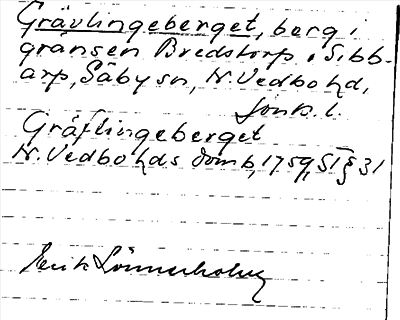 Grävlingeberget, berg i
gränsen Bredstorp, Sibb-
arp, Säby sn, N. Vedbo hd,
Jönk. l.
Gräflingeberget
N. Vedbo hds domb, 1759, § 31
Erik Lönnerholm